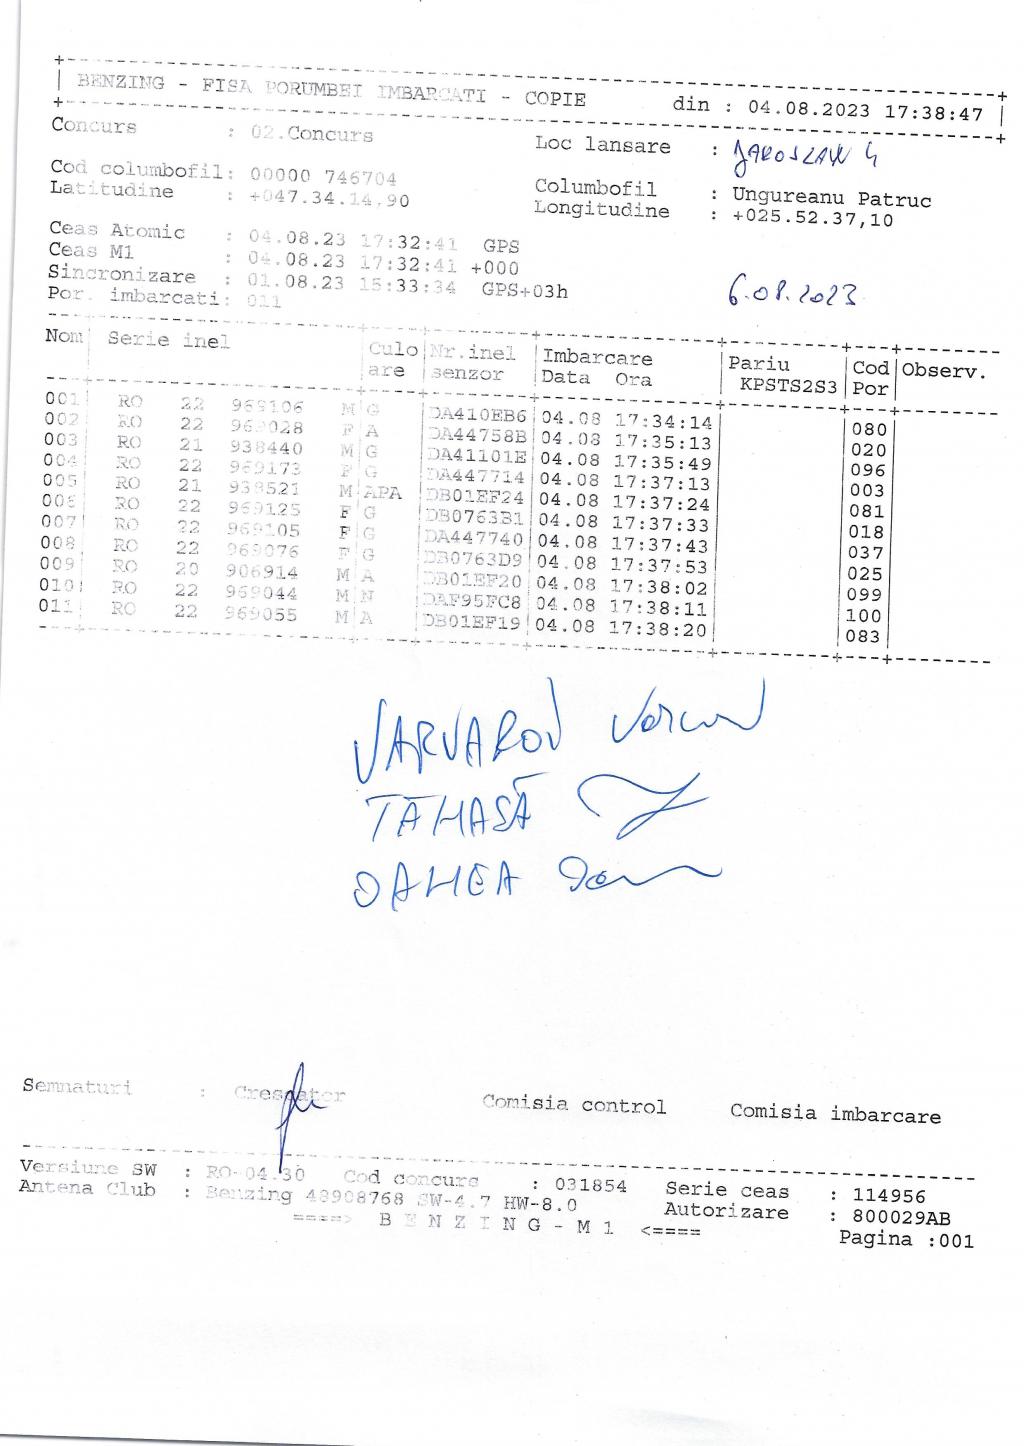 BENZING - FISA PORUMBEI IMBARCATI - COPIE din : 04.08.2023 17:38:47
Concurs : 02.Concurs Loc lansare : JAROSLAW 4
Cod columbofil: 00000 746704 Columbofil : Ungureanu Patruc
Latitudine : +047.34.14,90 Longitudine : +025.52.37,10
Ceas Atomic : 04.08.23 17:32:41 GPS
Ceas M1 : 04.08.23 17:32:41 +000
Sincronizare : 01.08.23 15:33:34 GPS+03h
Por. imbarcati: 011 6.08.2023
Nom Serie inel Culo Nr.inel Imbarcare Pariu Cod Observ.
are senzor Data Ora KPSTS2S3 Por
001 RO 22 969106 M G DA410EB6 04.08 17:34:14 080
002 RO 22 969028 F A DA44758B 04.08 17:35:13 020
003 RO 21 938440 M G DA41101E 04.08 17:35:49 096
004 RO 22 969173 F G DA447714 04.08 17:37:13 003
005 RO 21 938521 M APA DB01EF24 04.08 17:37:24 081
006 RO 22 969125 F G DB0763B1 04.08 17:37:33 018
007 RO 22 969105 F G DA447740 04.08 17:37:43 037
008 RO 22 969076 F G DB0763D9 04.08 17:37:53 025
009 RO 20 906914 M A DB01EF20 04.08 17:38:02 099
010 RO 22 969044 M N DAF95FC8 04.08 17:38:11 100
011 RO 22 969055 M A DB01EF19 04.08 17:38:20 083
VARVAROI
TĂMASĂ
DAMEA
Semnaturi : Crescator Comisia control Comisia imbarcare
Versiune SW : RO-04.30 Cod concurs : 031854 Serie ceas : 114956
Antena Club : Benzing 48908768 SW-4.7 HW-8.0 Autorizare : 800029AB
====> B E N Z I N G - M 1 <==== Pagina :001